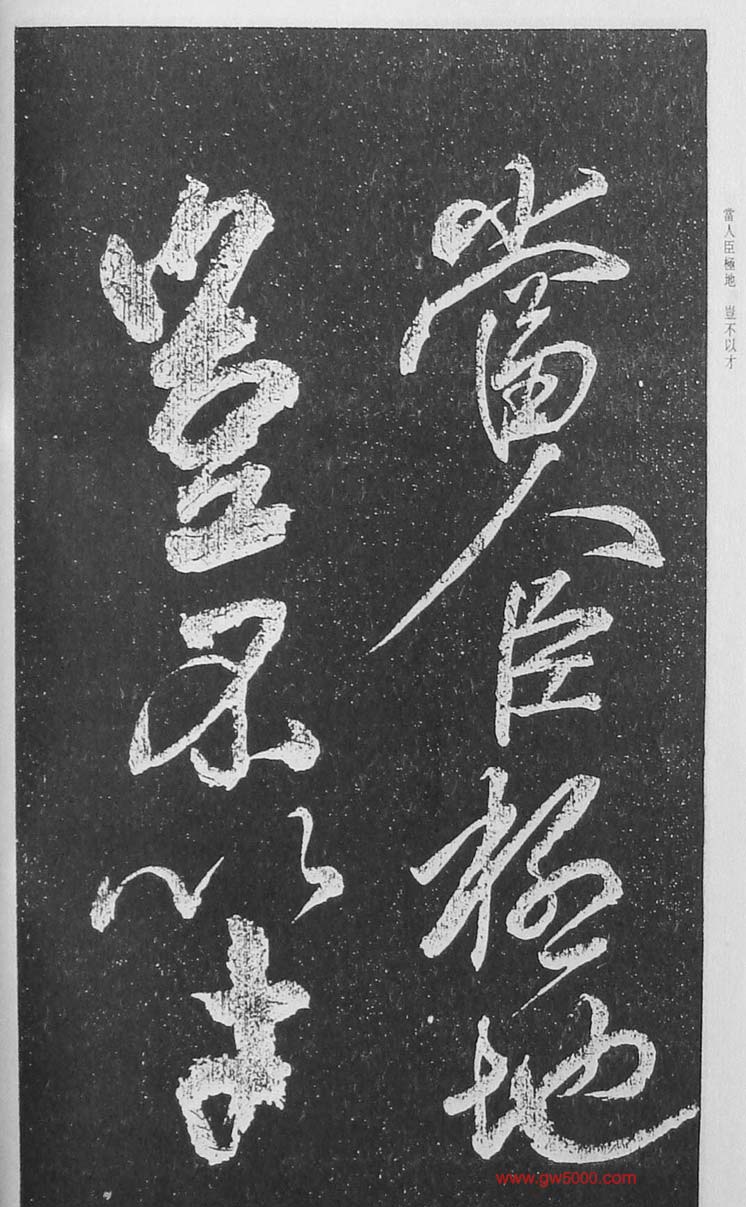 當人臣極地 豈不以才
當人臣極地
豈不以才
www.gw5000.com